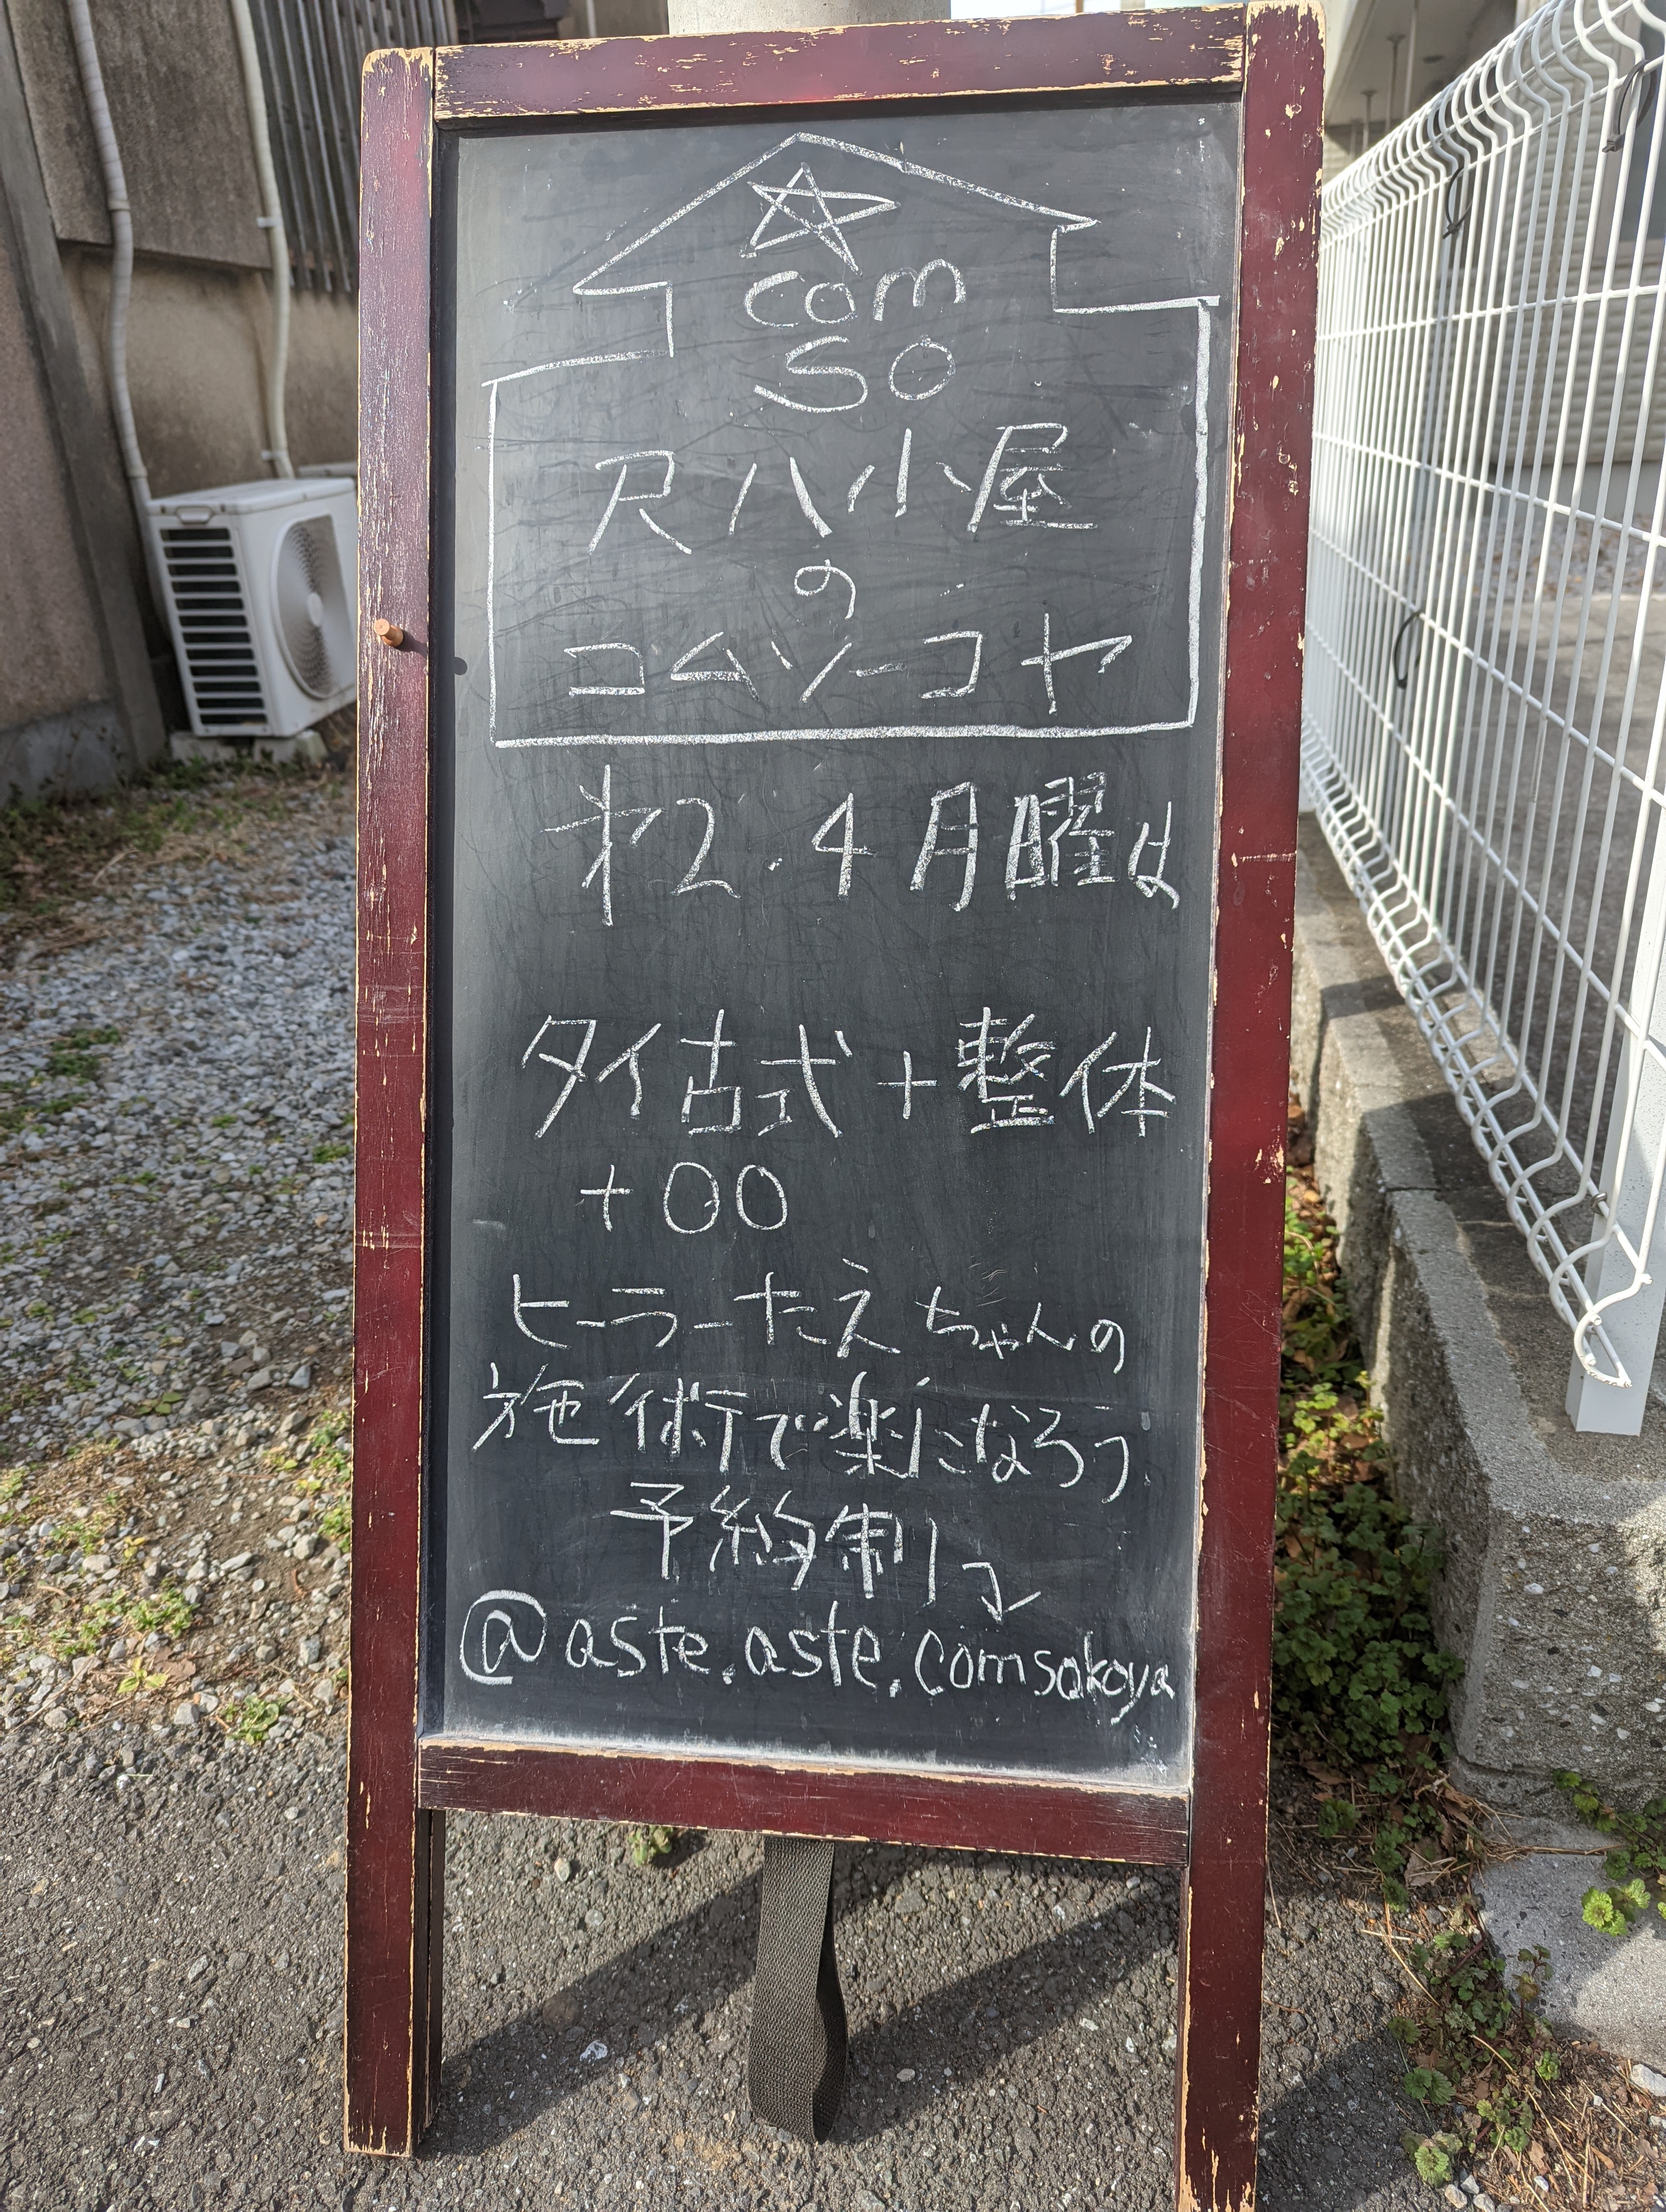 com
so
尺八小屋
の
コムソーコヤ
才2.4月曜は
タイ古式+整体
+〇〇
ヒーラーたえちゃんの
施術で楽になろう
予約制↓
@aste.aste.comsokoya